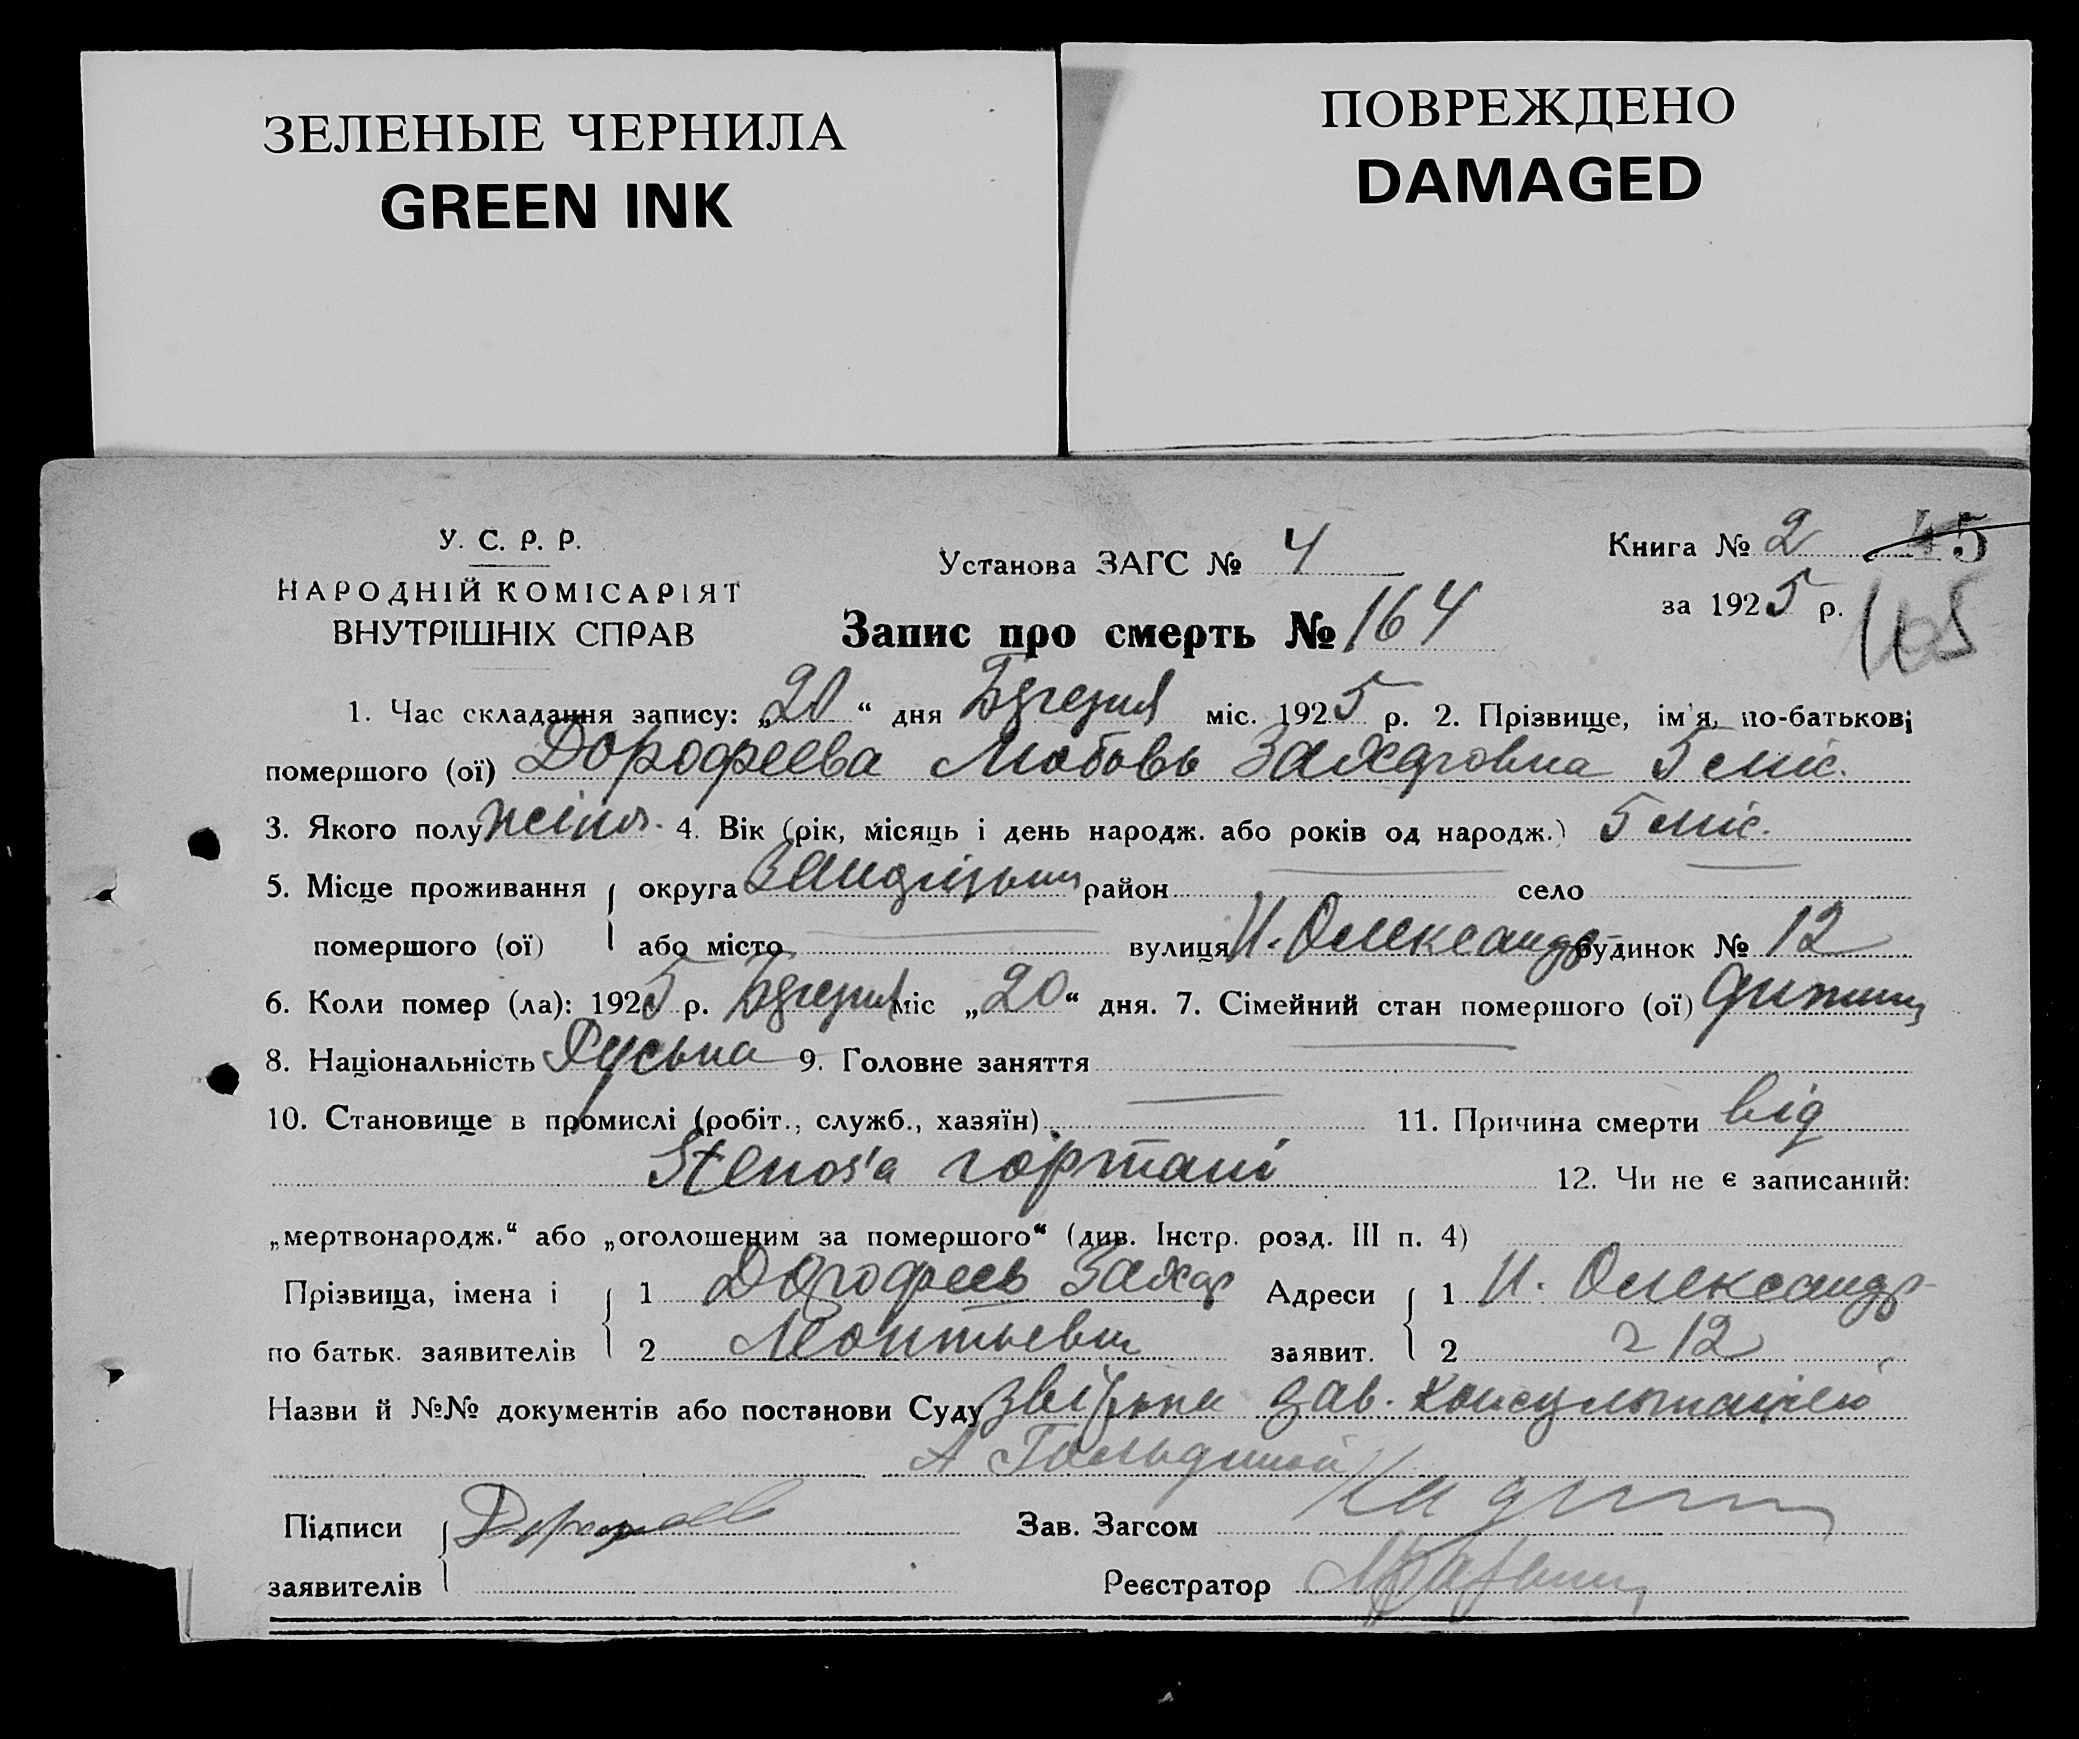 ЗЕЛЕНЫЕ ЧЕРНИЛА
GREEN INK
ПОВРЕЖДЕНО
DAMAGED
У. С. Р. Р.
НАРОДНІЙ КОМІСАРІЯТ
ВНУТРІШНІХ СПРАВ
Установа ЗАГС № 4
Запис про смерть № 164
Книга № 2 45
за 1925 р. 105
1. Час складання запису: „20“ дня Березня міс. 1925 р. 2. Прізвище, ім'я, по-батькові
помершого (ої) Дорофеева Любовь Захаровна 5 міс.
3. Якого полу жіноч. 4. Вік (рік, місяць і день народж. або років од народж.) 5 міс.
5. Місце проживання { округа район село
помершого (ої) або місто вулиця Н. Олександр будинок № 12
6. Коли помер (ла): 1925 р. Березня міс „20“ дня. 7. Сімейний стан помершого (ої) дитина
8. Національність Руська 9. Головне заняття
10. Становище в промислі (робіт., служб., хазяїн) 11. Причина смерти від
Stenos'a гортані 12. Чи не є записаний:
„мертвонародж.“ або „оголошеним за помершого“ (див. Інстр. розд. III п. 4)
Прізвища, імена і { 1 Дорофеев Захар Адреси { 1 Н. Олександр
по батьк. заявителів 2 Леонтьевич заявит. 2 12
Назви й №№ документів або постанови Суду зав. консультацією
Підписи { Дорофеев Зав. Загсом
заявителів Реєстратор